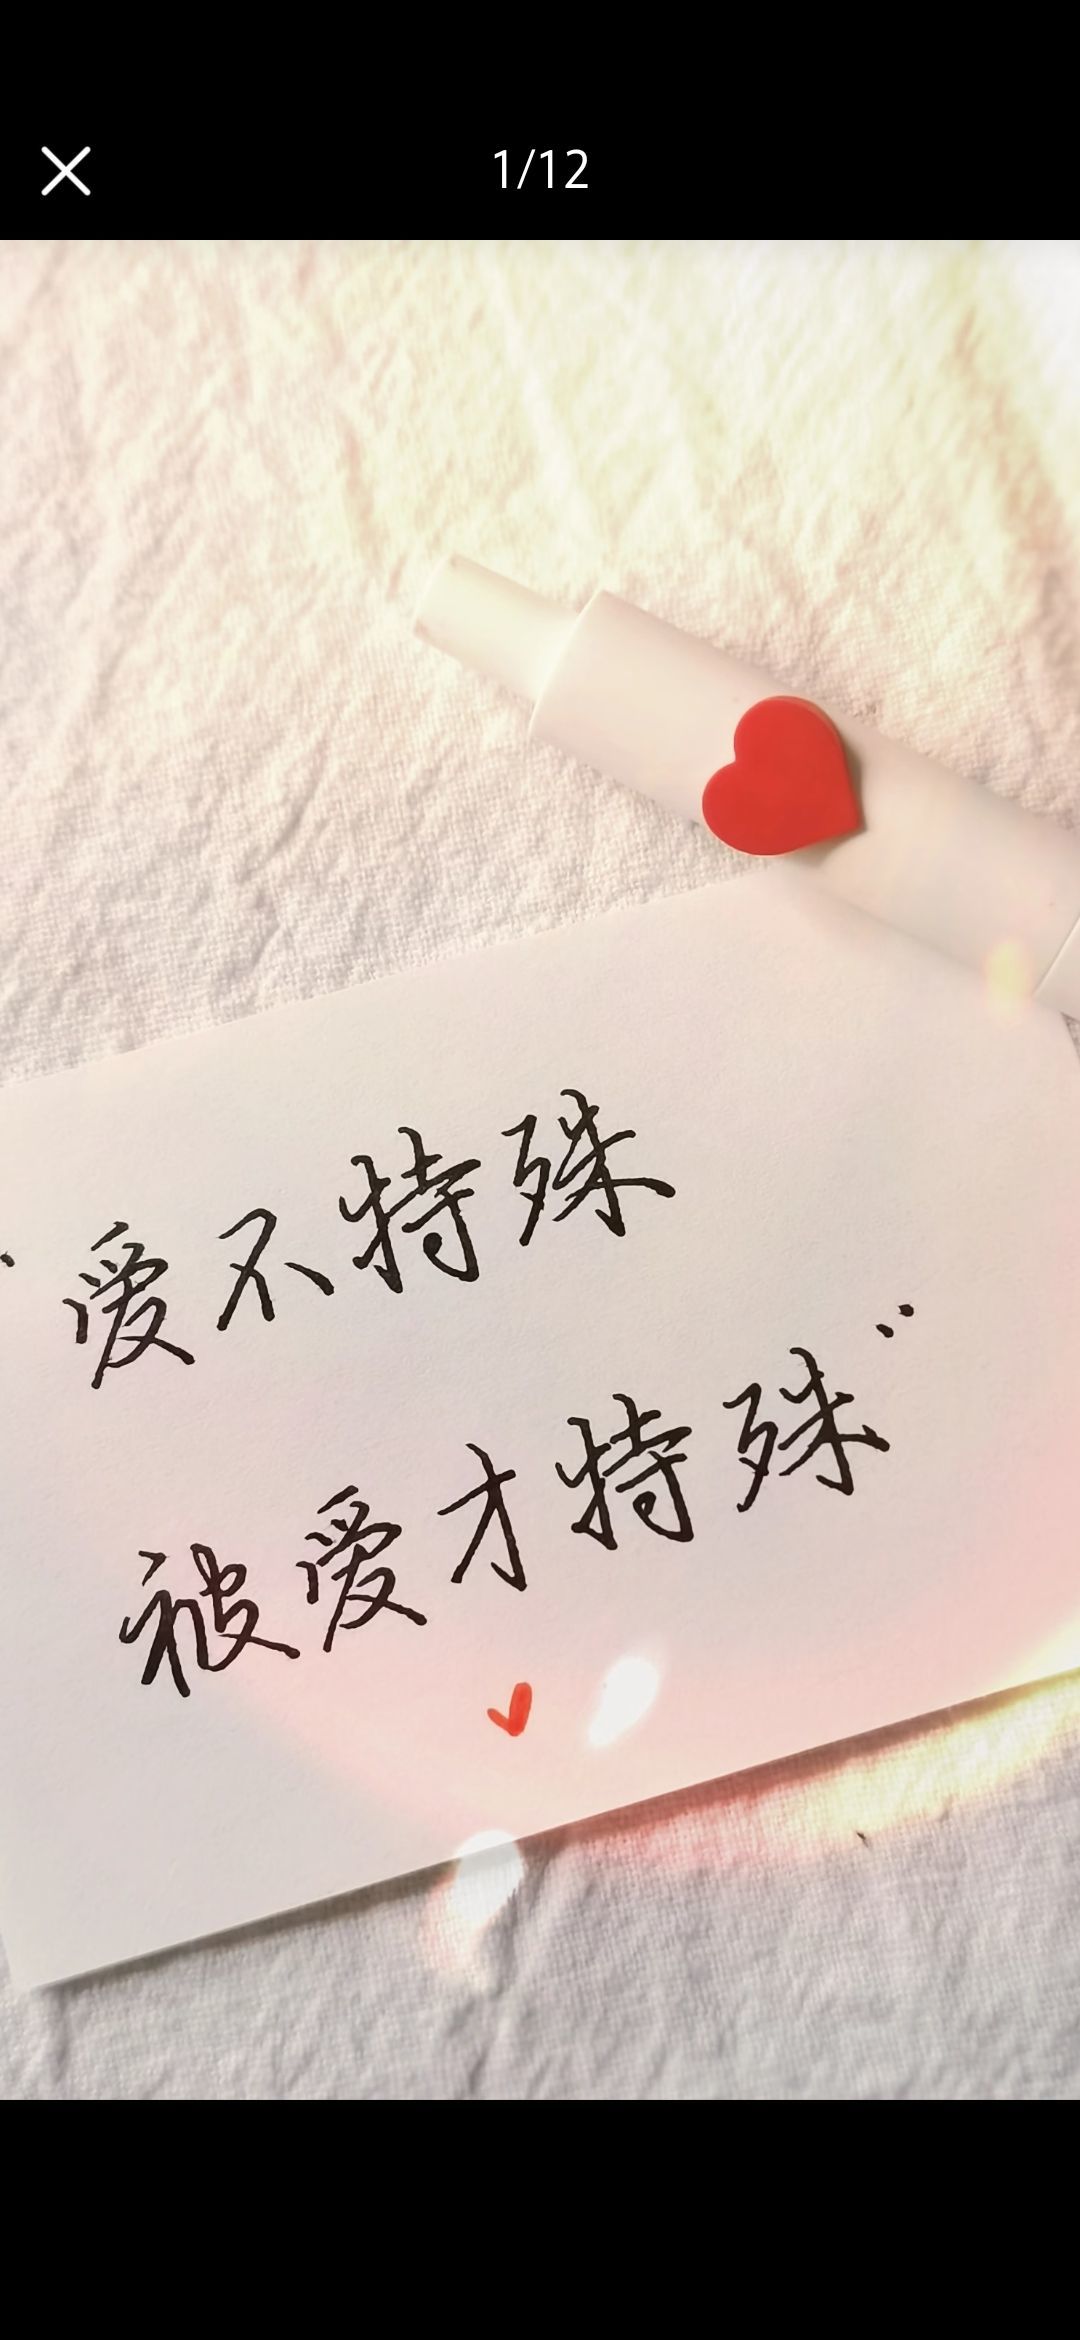 1/12
“爱不特殊
被爱才特殊”